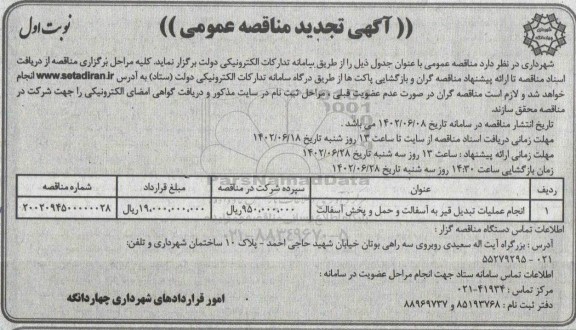 نوبت اول
(( آگهی تجدید مناقصه عمومی ))
شهرداری در نظر دارد مناقصه عمومی با عنوان جدول ذیل را از طریق سامانه تدارکات الکترونیکی دولت برگزار نماید. کلیه مراحل برگزاری مناقصه از دریافت
اسناد مناقصه تا ارائه پیشنهاد مناقصه گران و بازگشایی پاکت ها از طریق درگاه سامانه تدارکات الکترونیکی دولت (ستاد) به آدرس www.setadiran.ir انجام
خواهد شد و لازم است مناقصه گران در صورت عدم عضویت قبلی، مراحل ثبت نام در سایت مذکور و دریافت گواهی امضای الکترونیکی را جهت شرکت در
مناقصه محقق سازند.
تاریخ انتشار مناقصه در سامانه تاریخ ۱۴۰۲/۰۶/۰۸ می باشد.
مهلت زمانی دریافت اسناد مناقصه از سایت تا ساعت ۱۳ روز شنبه تاریخ ۱۴۰۲/۰۶/۱۸
مهلت زمانی ارائه پیشنهاد : ساعت ۱۳ روز سه شنبه تاریخ ۱۴۰۲/۰۶/۲۸
زمان بازگشایی ساعت ۱۴:۳۰ روز سه شنبه تاریخ ۱۴۰۲/۰۶/۲۸
ردیف عنوان سپرده شرکت در مناقصه مبلغ قرارداد شماره مناقصه
۱ انجام عملیات تبدیل قیر به آسفالت و حمل و پخش آسفالت ۹۵۰،۰۰۰،۰۰۰ریال ۱۹،۰۰۰،۰۰۰،۰۰۰ریال ۲۰۰۲۰۹۴۵۰۰۰۰۰۰۲۸
اطلاعات تماس دستگاه مناقصه گزار :
آدرس : بزرگراه آیت اله سعیدی روبروی سه راهی بوتان خیابان شهید حاجی احمد - پلاک ۱۰ ساختمان شهرداری و تلفن:
۰۲۱ - ۵۵۲۷۹۲۹۵
اطلاعات تماس سامانه ستاد جهت انجام مراحل عضویت در سامانه :
مرکز تماس : ۴۱۹۳۴-۰۲۱
دفتر ثبت نام : ۸۵۱۹۳۷۶۸ و ۸۸۹۶۹۷۳۷
امور قراردادهای شهرداری چهاردانگه
ParsNamadData
۰۲۱-۸۸۳۴۹۶۷۰-۵